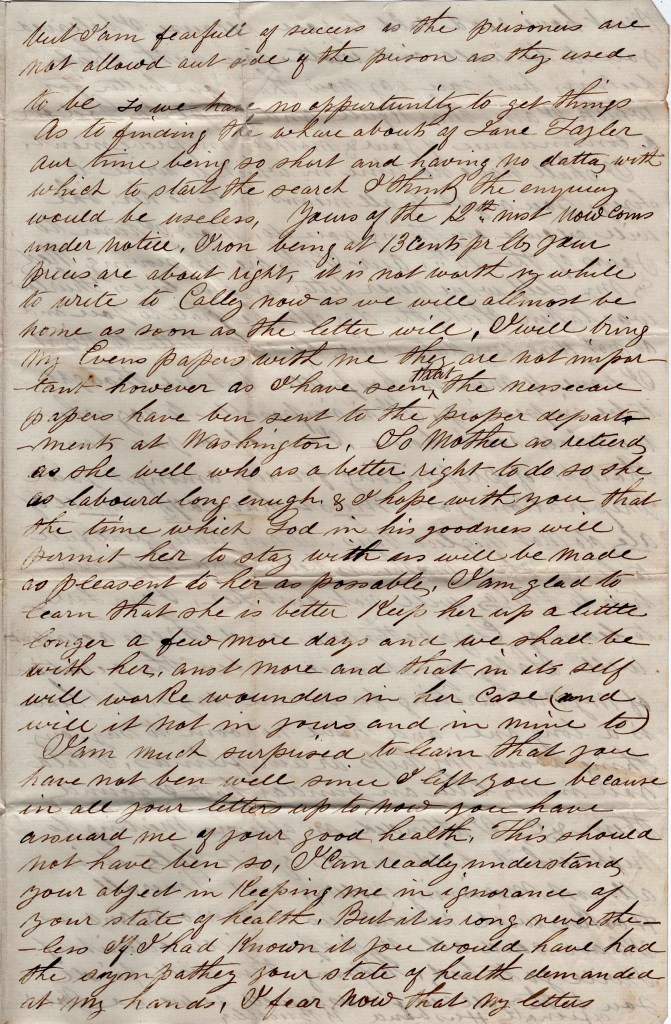 but I am fearfull of success as the prisoners are
not allowd out side of the prison as they used
to be so we have no oppurtunity to get things
As to finding the whare abouts of Jane Tayler
our time being so short and having no datta with
which to start the search I think the enquiery
would be useless, Yours of the 12th inst now coms
under notice, Iron being at 13 cents pr lbs your
prices are about right, it is not worth my while
to write to Calley now as we will allmost be
home as soon as the letter will, I will bring
my Evens papers with me they are not impor-
tant however as I have seen that the nessecare
papers have ben sent to the proper depart-
-ments at Washington. So Mother as retierd
as she well who as a better right to do so she
as labourd long enugh & I hope with you that
the time which God in his goodness will
permit her to stay with us will be made
as pleasent to her as possable, I am glad to
learn that she is better Keep her up a little
longer a few more days and we shall be
with her, onst more and that in its self
will worke wounders in her case (and
will it not in yours and in mine to)
I am much surprised to learn that you
have not ben well since I left you because
in all your letters up to now you have
asuard me of your good health, This should
not have ben so, I can readly understand
your object in Keeping me in ignorance of
your state of health. But it is rong neverthe-
-less If I had Known it you would have had
the sympathey your state of health demanded
at my hands, I fear now that my letters